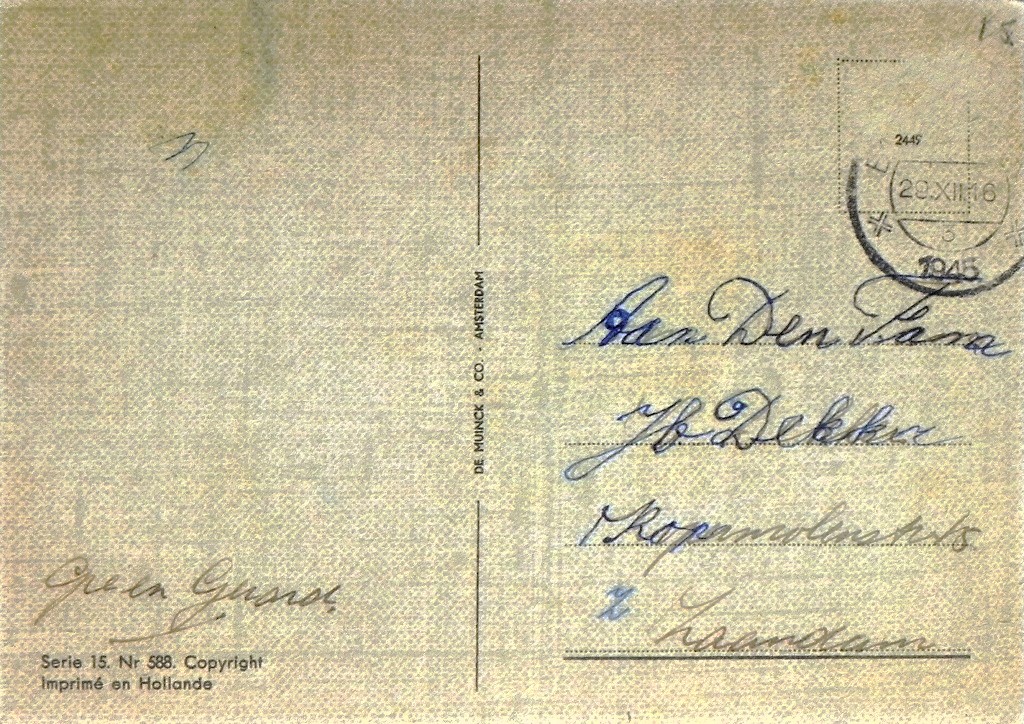 15
2445
29.XII 16
3
1945
Aan Den Fama
Jb Dekker
Kopermolenstr 45
Z Zaandam
DE MUINCK & CO. AMSTERDAM
Gre en Gerard.
Serie 15. Nr 588. Copyright
Imprimé en Hollande